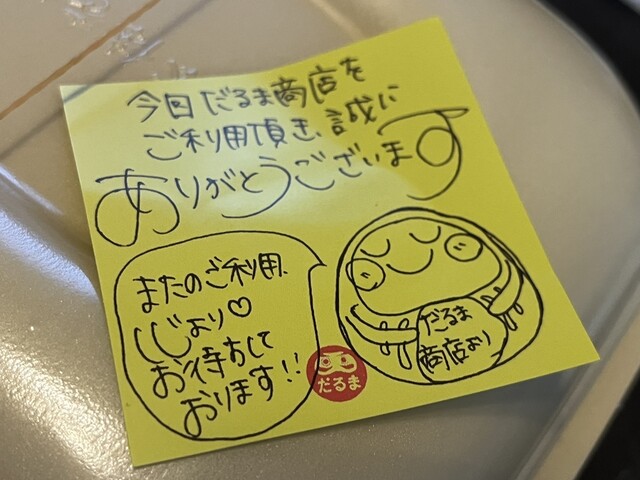 今日だるま商店を
ご利用頂き、誠に
ありがとうございます
またのご利用、
心より♡
お待ちして
おります!!
だるま
だるま
商店より